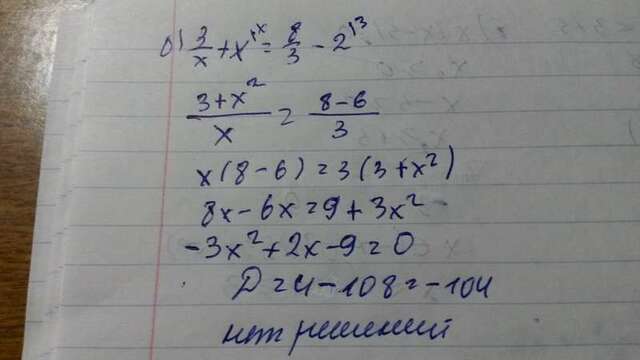 б) 3/x + x^1x = 8/3 - 2^13
3+x²/x = 8-6/3
x(8-6)=3(3+x²)
8x-6x=9+3x²
-3x²+2x-9=0
D=4-108=-104
нет решений